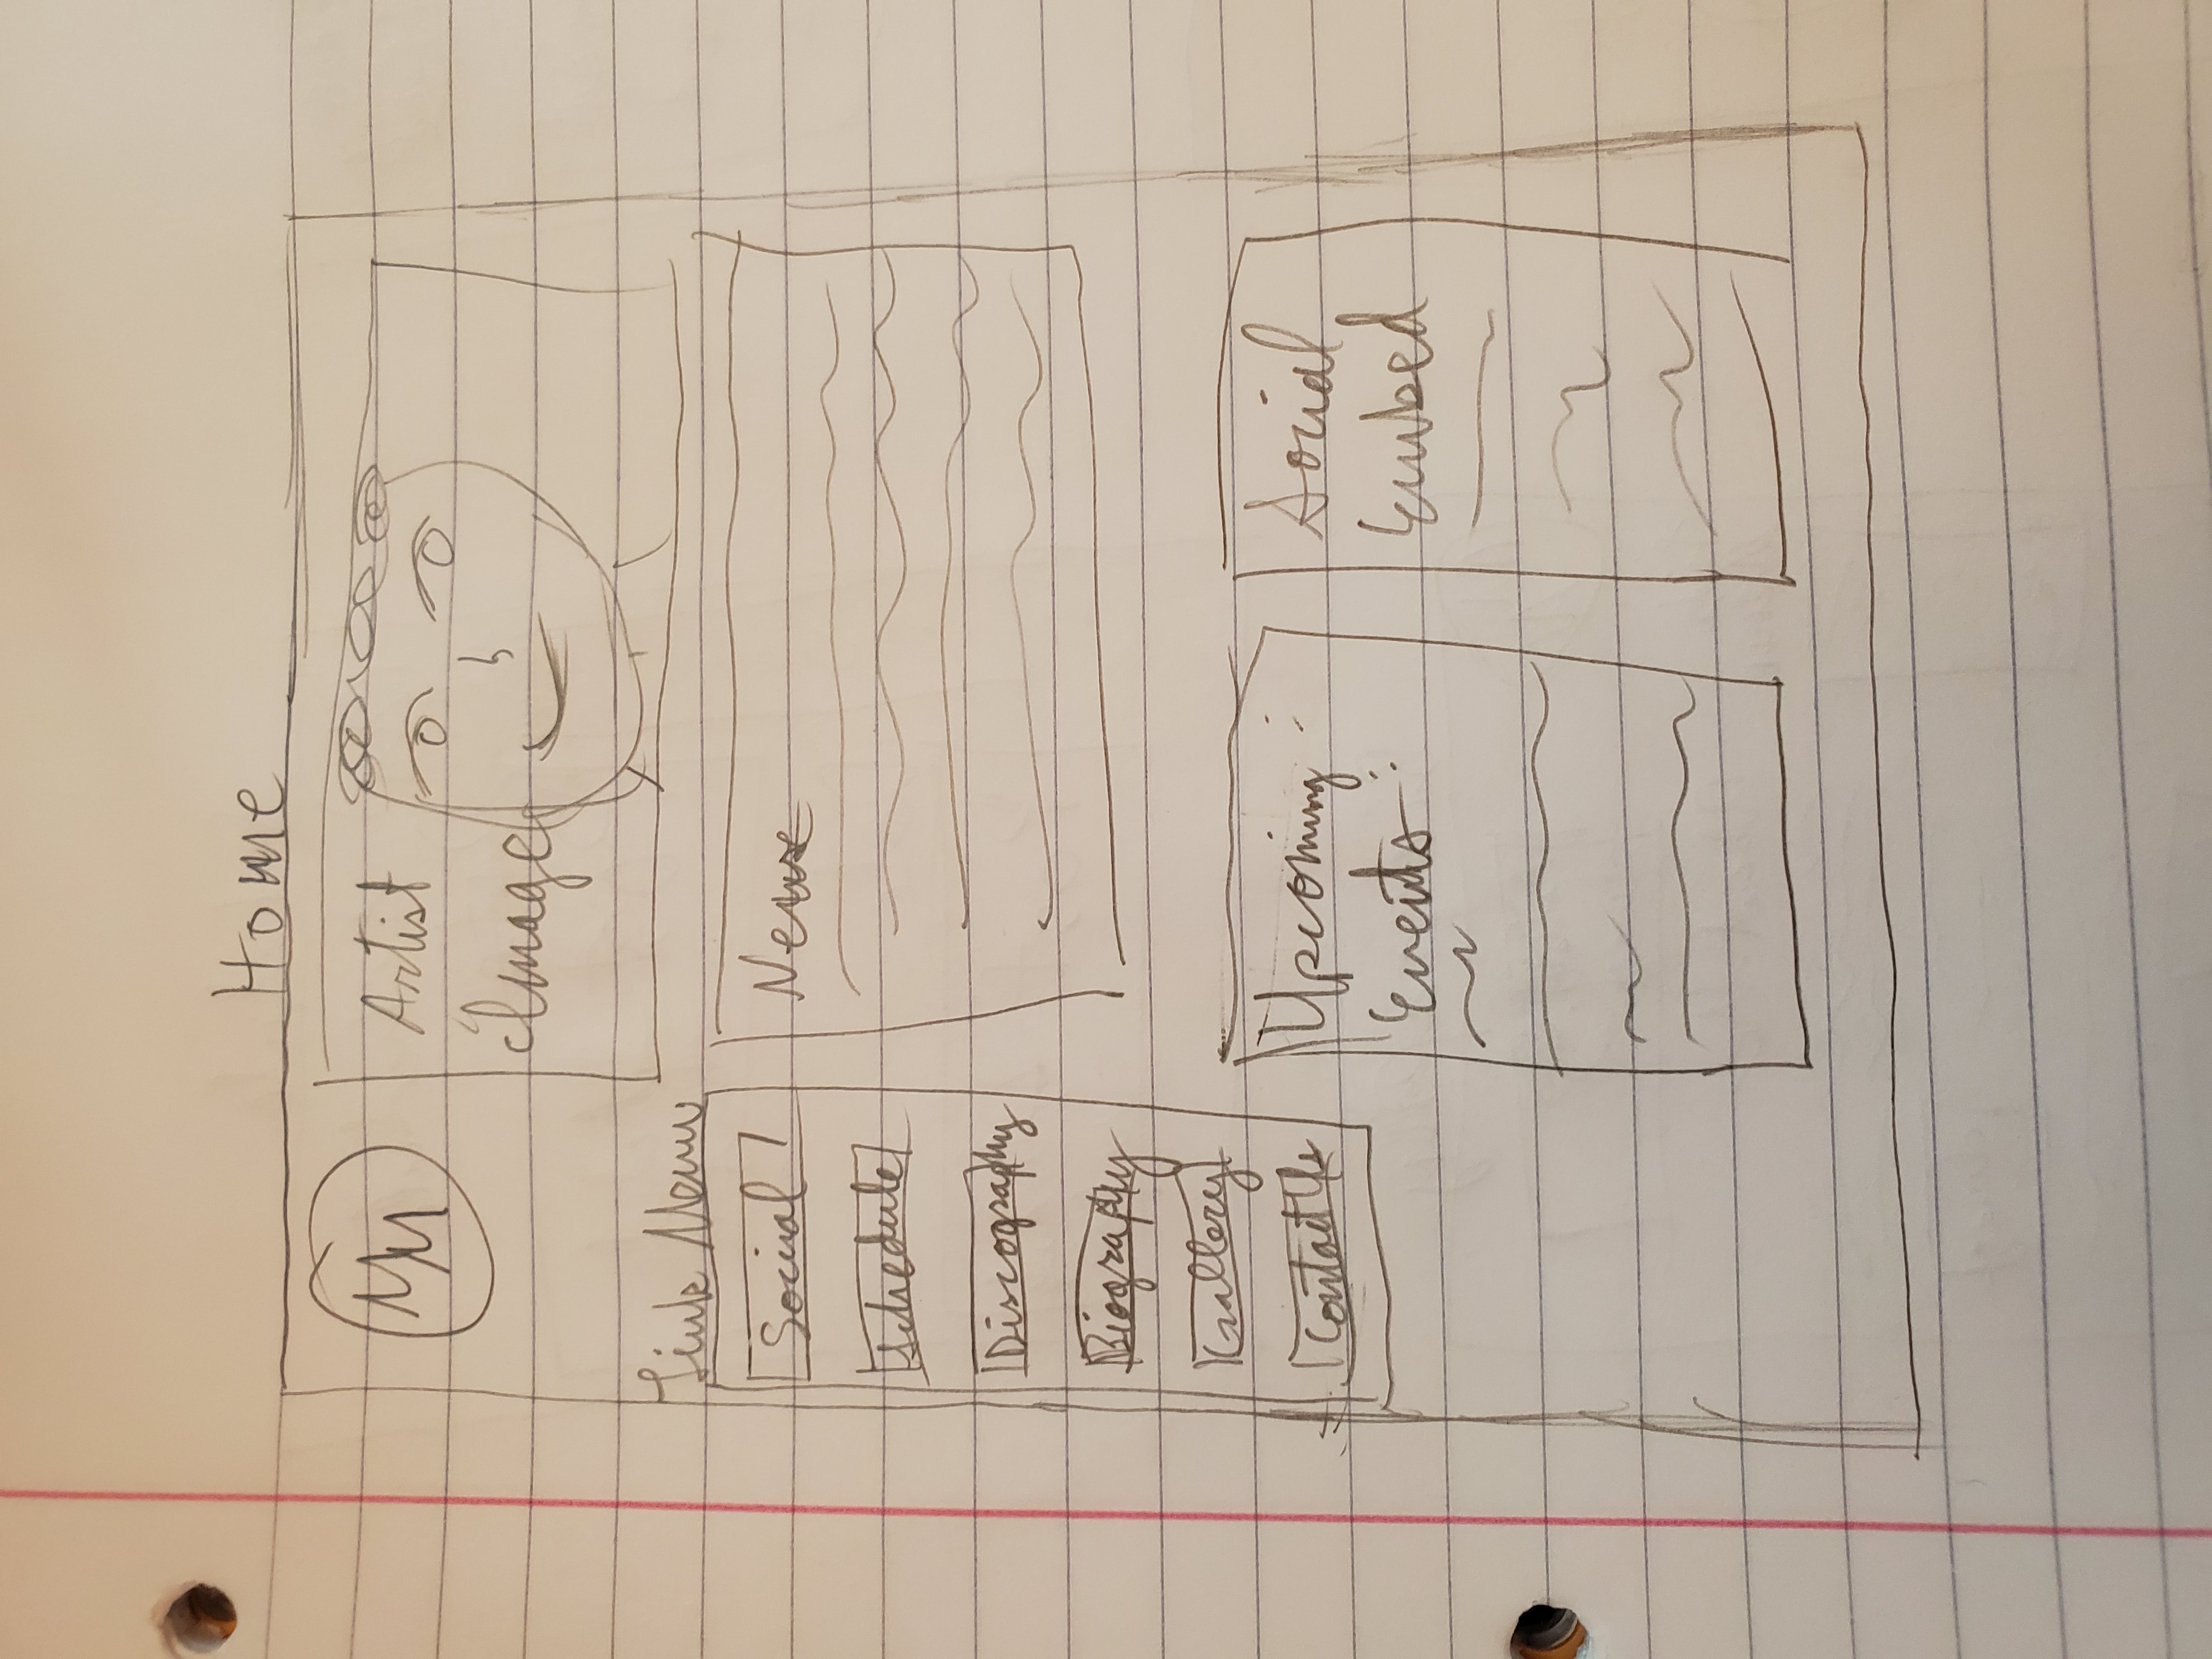 Home
MM
Artist
Image
Link Menu
Social
Schedule
Discography
Biography
Gallery
Contact Us
News
Upcoming :
Events :
Social
Embed